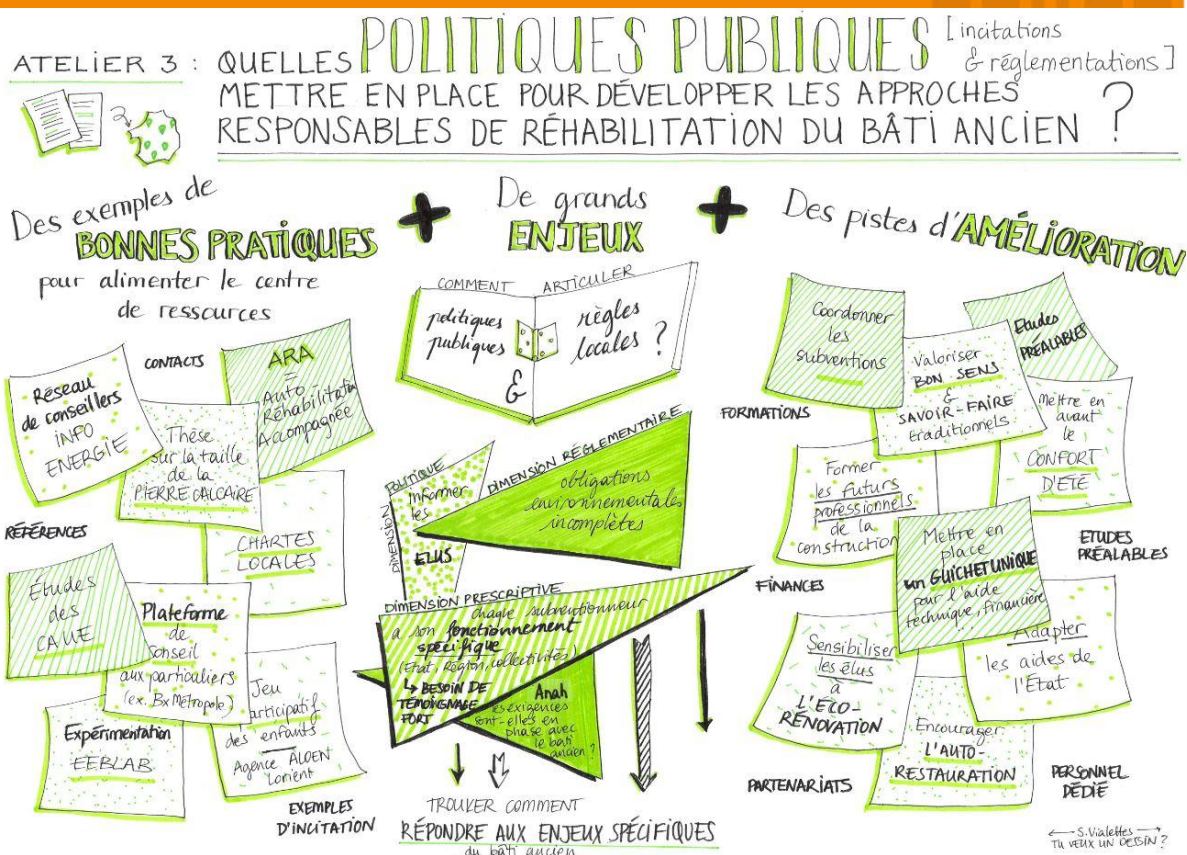 ATELIER 3 : QUELLES POLITIQUES PUBLIQUES [incitations
& réglementations]
METTRE EN PLACE POUR DÉVELOPPER LES APPROCHES
RESPONSABLES DE RÉHABILITATION DU BÂTI ANCIEN ?
Des exemples de
BONNES PRATIQUES
pour alimenter le centre
de ressources
CONTACTS
Réseau
de conseillers
INFO
ENERGIE
ARA
=
Auto
Réhabilitation
Accompagnée
Thèse
sur la taille
de la
PIERRE CALCAIRE
RÉFÉRENCES
CHARTES
LOCALES
Études
des
CAUE
Plateforme
de
Conseil
aux particuliers
(ex. Bx Métropole)
Jeu
participatif
des enfants
Agence ALOEN
Lorient
Expérimentation
EEBLAB
EXEMPLES
D'INCITATION
+
De grands
ENJEUX
COMMENT ARTICULER
politiques
publiques
&
règles
locales ?
DIMENSION POLITIQUE
Informer
les
ELUS
DIMENSION RÉGLEMENTAIRE
obligations
environnementales
incomplètes
DIMENSION PRESCRIPTIVE
chaque subventionneur
a son fonctionnement
spécifique
(Etat, Région, collectivités)
↳ BESOIN DE
TÉMOIGNAGE
FORT
Anah
les exigences
sont-elles en
phase avec
le bâti
ancien ?
TROUVER COMMENT
RÉPONDRE AUX ENJEUX SPÉCIFIQUES
du bâti ancien
+
Des pistes d'AMÉLIORATION
Coordonner
les
subventions
Etudes
PRÉALABLES
Valoriser
BON SENS
&
SAVOIR-FAIRE
traditionnels
FORMATIONS
Mettre en
avant
le
CONFORT
D'ÉTÉ
Former
les futurs
professionnels
de la
construction
Mettre en
place
un GUICHET UNIQUE
pour l'aide
technique, financière
ETUDES
PRÉALABLES
FINANCES
Sensibiliser
les élus
à
L'ÉCO-
RÉNOVATION
Adapter
les aides de
l'État
Encourager
L'AUTO-
RESTAURATION
PARTENARIATS
PERSONNEL
DÉDIÉ
S. Vialettes
TU VEUX UN DESSIN ?